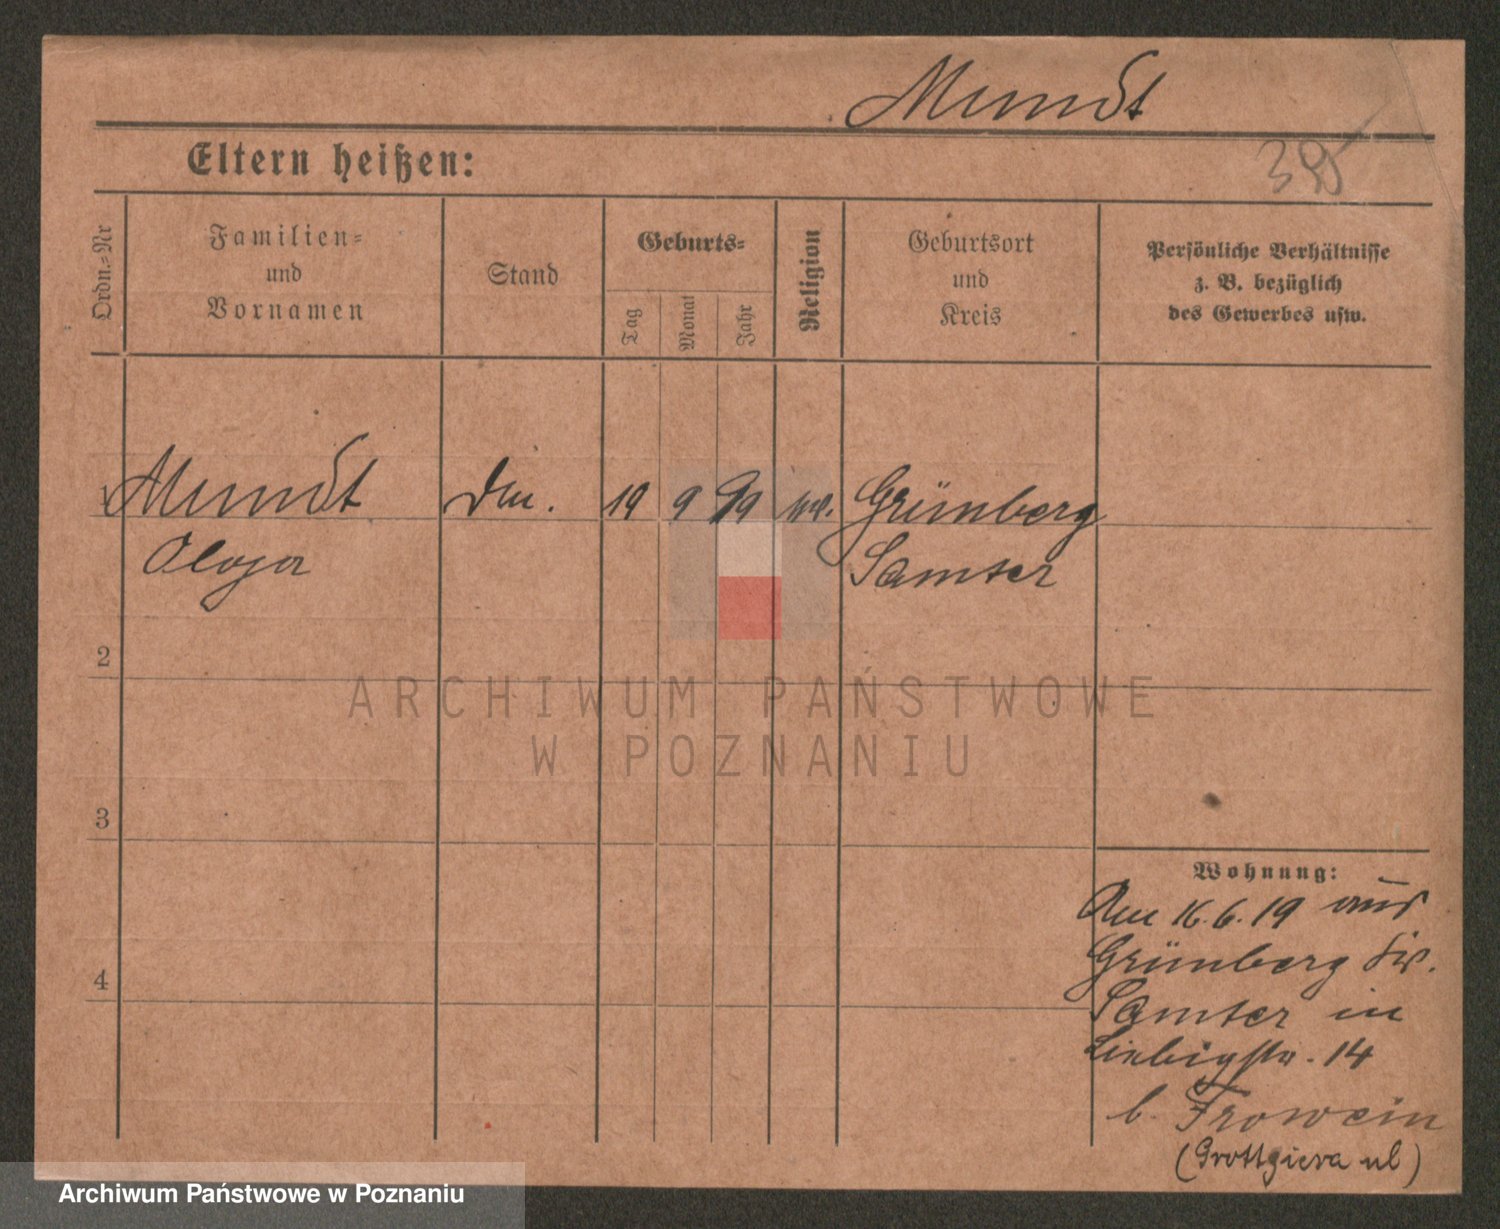 Mundt
Eltern heißen:
Ordn.-Nr
Familien-
und
Vornamen
Stand
Geburts-
Tag
Monat
Jahr
Religion
Geburtsort
und
Kreis
Persönliche Verhältnisse
z. B. bezüglich
des Gewerbes usw.
1 Mundt 19 9 99 Grünberg
Samter
2
3
4
Wohnung:
Am 16.6.19 aus
Grünberg
Samter in
Liebigstr. 14
b. Frowein
(Grottgiera ul)
ARCHIWUM PAŃSTWOWE
W POZNANIU
Archiwum Państwowe w Poznaniu